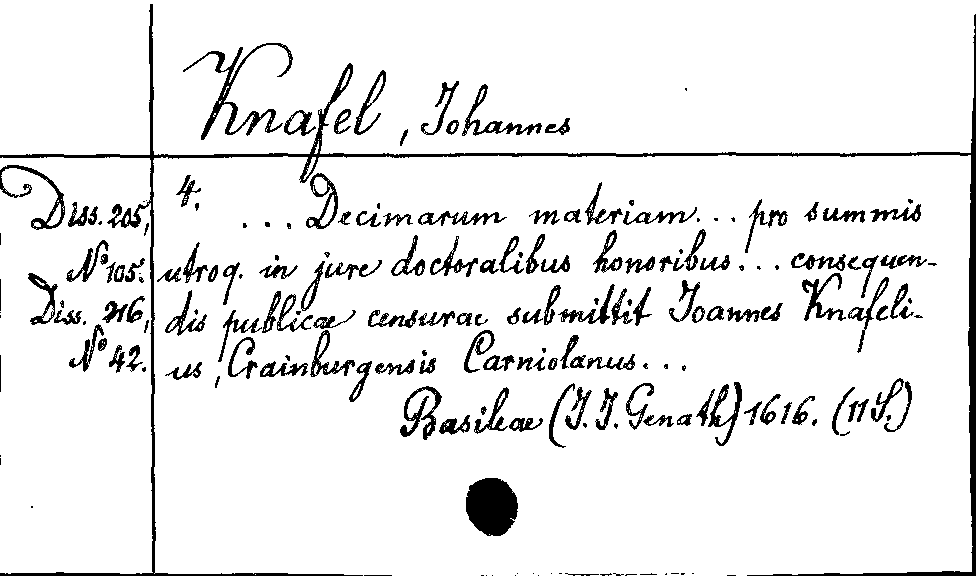 Knafel, Johannes
Diss. 205,
N° 105.
Diss. 216,
N° 42.
4.
... Decimarum materiam... pro summis
utroq. in jure doctoralibus honoribus... consequen-
dis publicae censurae submittit Joannes Knafeli-
us, Crainburgensis Carniolanus...
Basileae (J. J. Genath) 1616. (11 S.)